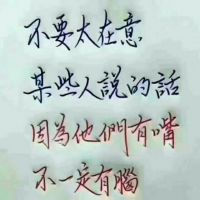 不要太在意
某些人説的話
因為他們有嘴
不一定有腦